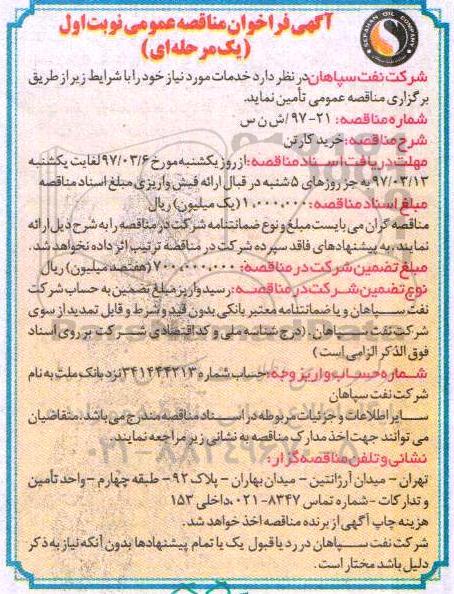 آگهی فراخوان مناقصه عمومی نوبت اول
(یک مرحله ای)
SEPAHAN OIL COMPANY
شرکت نفت سپاهان در نظر دارد خدمات مورد نیاز خود را با شرایط زیر از طریق
برگزاری مناقصه عمومی تأمین نماید.
شماره مناقصه: ۲۱-۹۷/ش ن س
شرح مناقصه: خرید کارتن
مهلت دریافت اسناد مناقصه: از روز یکشنبه مورخ ۹۷/۰۳/۶ لغایت یکشنبه
۹۷/۰۳/۱۳ به جز روزهای ۵شنبه در قبال ارائه فیش واریزی مبلغ اسناد مناقصه
مبلغ اسناد مناقصه: ۱,۰۰۰,۰۰۰ (یک میلیون) ریال
مناقصه گران می بایست مبلغ و نوع ضمانتنامه شرکت در مناقصه را به شرح ذیل ارائه
نمایند، به پیشنهادهای فاقد سپرده شرکت در مناقصه ترتیب اثر داده نخواهد شد.
مبلغ تضمین شرکت در مناقصه: ۷۰۰,۰۰۰,۰۰۰ (هفتصد میلیون) ریال
نوع تضمین شرکت در مناقصه: رسید واریز مبلغ تضمین به حساب شرکت
نفت سپاهان و یا ضمانتنامه معتبر بانکی بدون قید و شرط و قابل تمدید از سوی
شرکت نفت سپاهان. (درج شناسه ملی و کد اقتصادی شرکت بر روی اسناد
فوق الذکر الزامی است)
شماره حساب واریز وجه: حساب شماره ۳۴۱۴۴۴۲۱۳ نزد بانک ملت به نام
شرکت نفت سپاهان
سایر اطلاعات و جزئیات مربوطه در اسناد مناقصه مندرج می باشد. متقاضیان
می توانند جهت اخذ مدارک مناقصه به نشانی زیر مراجعه نمایند.
نشانی و تلفن مناقصه گزار:
تهران - میدان آرژانتین - میدان بهاران - پلاک ۹۲ - طبقه چهارم - واحد تأمین
و تدارکات - شماره تماس ۸۳۴۷-۰۲۱، داخلی ۱۵۳
هزینه چاپ آگهی از برنده مناقصه اخذ خواهد شد.
شرکت نفت سپاهان در رد یا قبول یک یا تمام پیشنهادها بدون آنکه نیاز به ذکر
دلیل باشد مختار است.